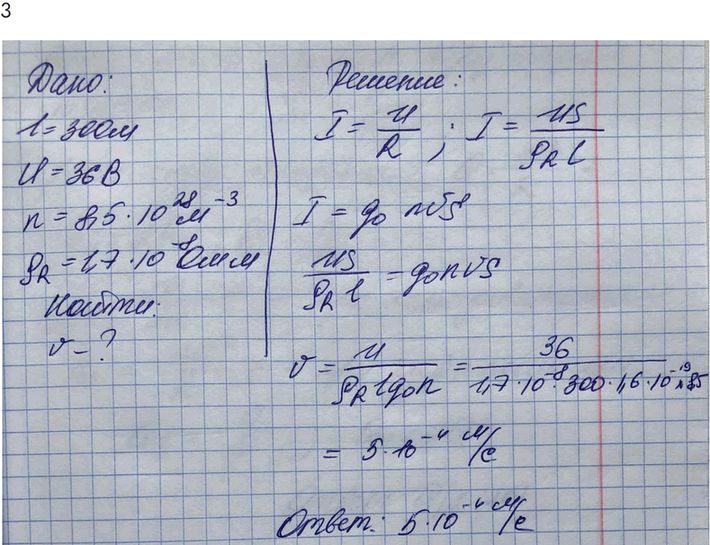 3
Дано:
l = 300м
U = 36В
n = 8,5 · 10²⁸ м⁻³
ρR = 1,7 · 10⁻⁸ Ом м
Найти:
v - ?
Решение:
I = U/R ; I = US/(ρR l)
I = q₀ n v S
US/(ρR l) = q₀ n v S
v = U/(ρR l q₀ n) = 36/(1,7 · 10⁻⁸ · 300 · 1,6 · 10⁻¹⁹
= 5 · 10⁻⁴ м/с
Ответ: 5 · 10⁻⁴ м/с